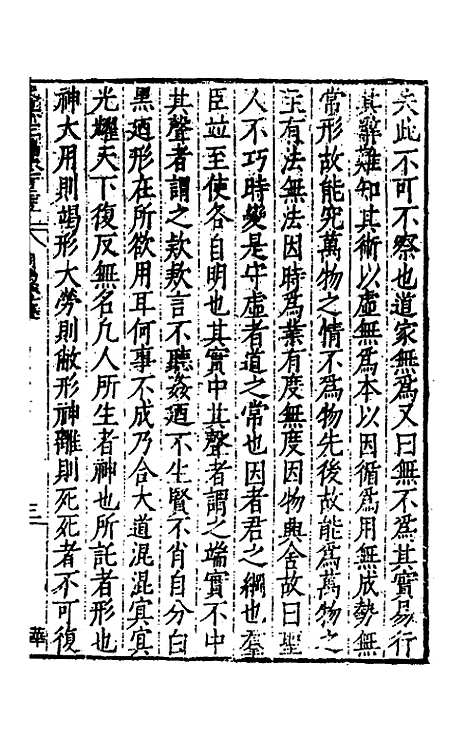 矣此不可不察也道家無為又曰無不為其實易行
其辭難知其術以虛無為本以因循為用無成勢無
常形故能究萬物之情不為物先後故能為萬物之
主有法無法因時為業有度無度因物與舍故曰聖
人不巧時變是守虛者道之常也因者君之綱也羣
臣並至使各自明也其實中其聲者謂之端實不中
其聲者謂之款款言不聽姦迺不生賢不肖自分白
黑迺形在所欲用耳何事不成乃合大道混混冥冥
光耀天下復反無名凡人所生者神也所託者形也
神大用則竭形大勞則敝形神離則死死者不可復
三
華